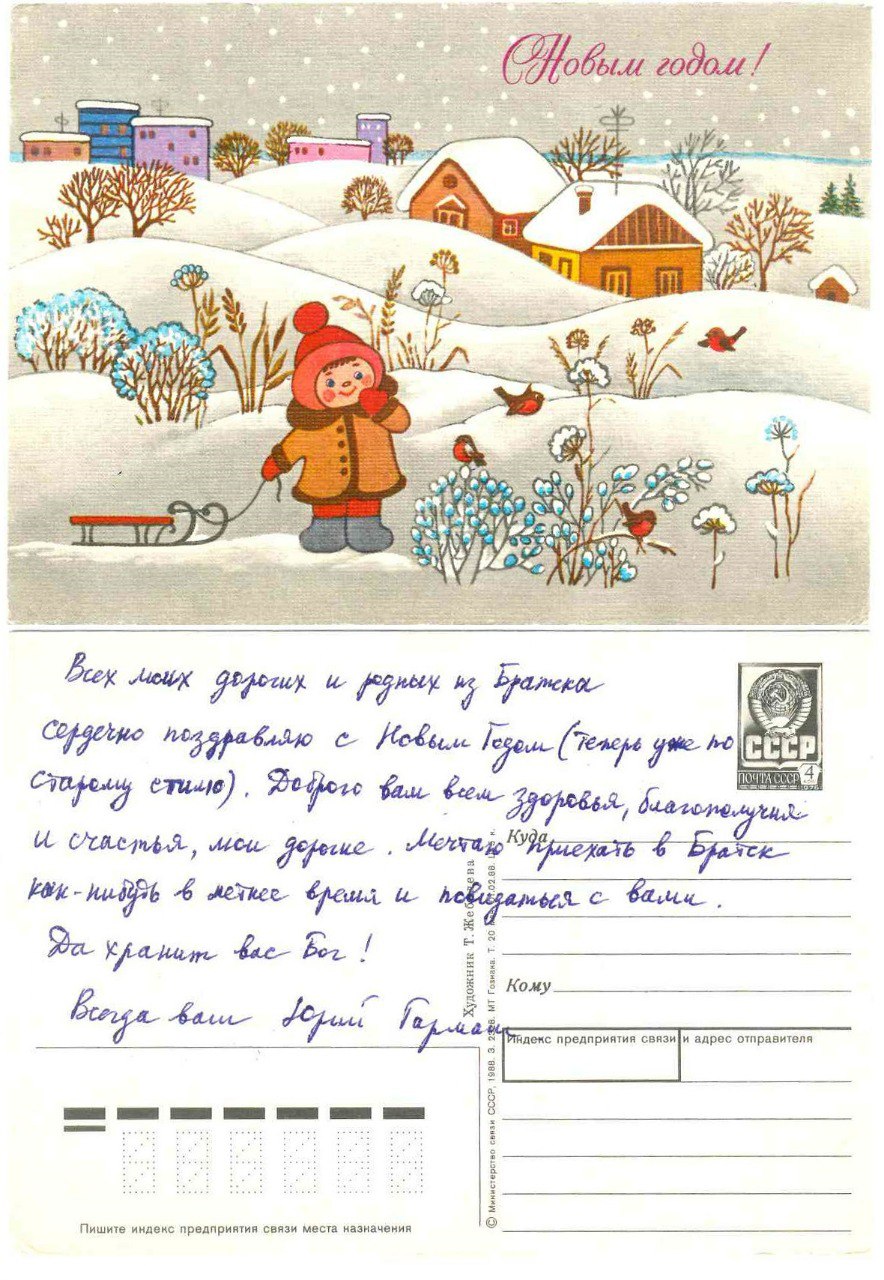 С Новым годом!
Всех моих дорогих и родных из Братска
сердечно поздравляю с Новым Годом (теперь уже по
старому стилю). Доброго вам всем здоровья, благополучия
и счастья, мои дорогие. Мечтаю приехать в Братск
как-нибудь в летнее время и повидаться с вами.
Да хранит вас Бог!
Всегда ваш Юрий
СССР
ПОЧТА СССР 4
Куда
Кому
Индекс предприятия связи и адрес отправителя
Художник Т. Жебелева
© Министерство связи СССР, 1988. З. МТ Гознака. Т. 20
Пишите индекс предприятия связи места назначения